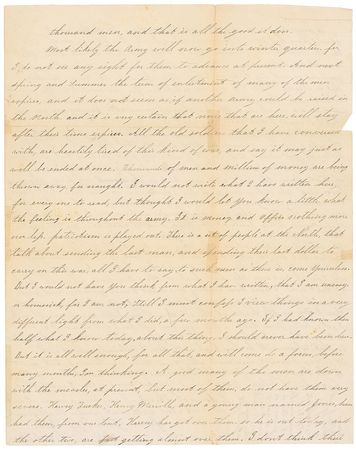 thousand men, and that is all the good it done.
Most likely the Army will now go into winter quarters, for
I do not see any sight for them to advance at present. And next
Spring and Summer the term of enlistment of many of the men
expires, and it does not seem as if another Army could be raised in
the North and it is very certain that none that are here will stay
after their time expires. All the old soldiers that I have conversed
with, are heartily tired of this kind of war, and say it may just as
well be ended at once. Thousands of men and millions of money are being
thrown away for naught. I would not wish what I have written here
for every one to read, but thought I would let you know a little what
the feeling is throughout the army. It is money and office nothing more
nor less, patriotism is played out. There is a set of people at the North, that
talk about sending the last man, and spending their last dollar to
carry on this war, all I have to say to such men as these is, come yourselves.
But I would not have you think from what I have written, that I am uneasy
or homesick, for I am not, Well I must confess I view things in a very
different light from what I did, a few months ago. If I had known then
half what I know today, about this thing, I should never have been here.
But it is all well enough, for all that, and will come to a focus before
many months, I'm thinking. A good many of the men are down
with the measles, at present, but most of them, do not have them very
severe. Henry Tucker, Henry Merrill, and a young man named Jones, have
had them, from our tent. Harry has got over them so he is out today, and
the other two, are getting almost over them. I don't think their